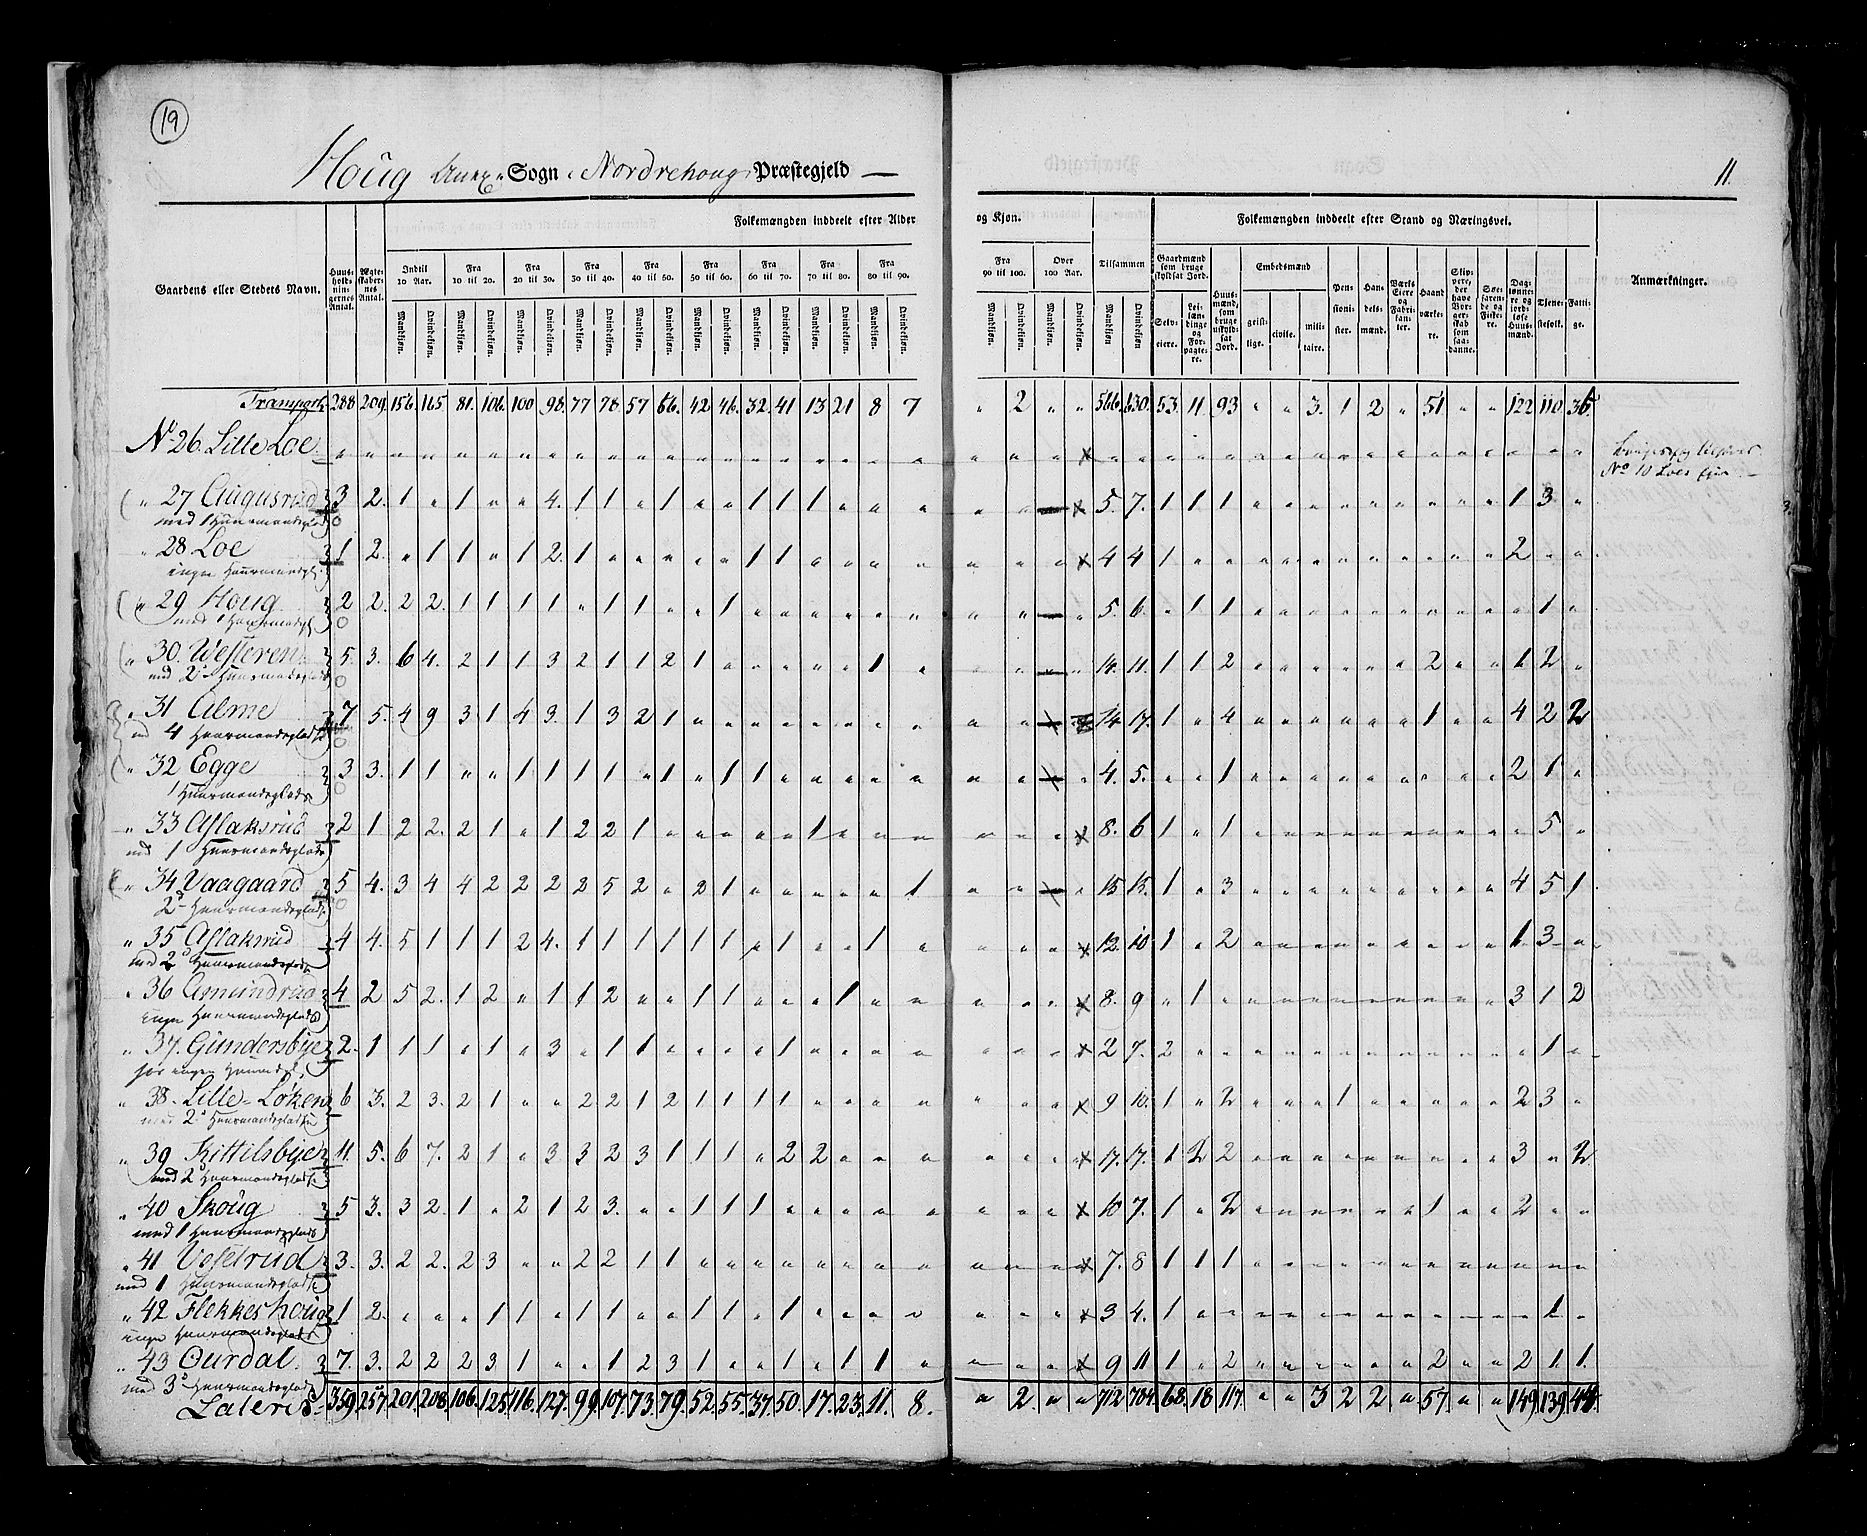 19
11.
Houg Anex Sogn i Nordrehoug Præstegjeld
Folkemængden inddeelt efter Alder og Kjøn.
Folkemængden inddeelt efter Stand og Næringsvei.
Gaardens eller Stedets Navn. Huusholdningernes Antal. Ægteskabernes Antal. Indtil 10 Aar. Fra 10 til 20. Fra 20 til 30. Fra 30 til 40. Fra 40 til 50. Fra 50 til 60. Fra 60 til 70. Fra 70 til 80. Fra 80 til 90. Fra 90 til 100. Over 100 Aar. Tilsammen
Gaardmænd som bruge skyldsat Jord. Selveiere. Leilændinge og Forpagtere. Huusmænd, som bruge uskyldsat Jord. Embedsmænd geistlige. civile. militaire. Pensionister. Handelsmænd. Værks Eiere og Fabrikanter. Haandværkere. Skippere, der have Borgerskab som saadanne. Søefarende og Fiskere. Daglønnere og jordløse Huusmænd. Tjenestefolk. Fattige. Anmærkninger.
Mandkjøn. Qvindekjøn. Mandkjøn. Qvindekjøn. Mandkjøn. Qvindekjøn. Mandkjøn. Qvindekjøn. Mandkjøn. Qvindekjøn. Mandkjøn. Qvindekjøn. Mandkjøn. Qvindekjøn. Mandkjøn. Qvindekjøn. Mandkjøn. Qvindekjøn. Mandkjøn. Qvindekjøn. Mandkjøn. Qvindekjøn. Mandkjøn. Qvindekjøn.
Transport 288 209. 156. 165 81. 106. 100 98. 77 78. 57 56. 42 46. 32. 41 13 21 8 7 " 2 " " 566. 630. 53. 11 93 " " 3. 1 2 " 51 " " 122 110 36.
No 26. Lille Loe
No 10 Loes
" 27 Augusrud 3 2. 1 " 1 " " 4. 1 1 " 1 " 1 " 1 1 1 " " " " 5. 7. 1 1 1 " " " " " " " " " 1 3 "
med 1 Huusmandsplads
" 28 Loe 1 2. " 1 1 " 1 2. 1 " " " " " 1 1 " " " " 4 4 1 " " " " " " " " " " " 2 " "
ingen Huusmandspl.
" 29 Houg 2 2. 2 2. 1 1 1 1 " 1 1 " " 1 " " " " " " 5. 6. " 1 1 " " " " " " " " " " 1 "
med 1 Huusmandspl
" 30. Westeren 5. 3. 6 4. 2 1 1 3 2 1 1 2 1 " " " " " 1 " 14. 11. 1 1 2 " " " " " " 2 " " 1 2 "
med 2 Huusmandsplads
" 31 Alme 7 5. 4 9 3 1 4 3. 1 3 2 1 " " " " " " " " 14 17. 1 " 4 " " " " " " 1 " " 4 2 2
md 4 Huusmandsplads
" 32 Egge 3 3. 1 1 " " 1 1 1 1 " 1 " 1 1 " " " " " 4. 5. " " 1 " " " " " " " " " 2 1 "
1 Huusmandsplads
" 33 Aslaksrud 2 1 2 2. 2 1 " 1 2 2 1 " " " " " 1 " " " 8. 6 1 " 1 " " " " " " " " " " 5 "
md 1 Huusmandsplads
" 34 Vaagaard 5 4. 3 4 4 2 2 2 2 5 2 " 2 1 " " " " " 1 15 15. 1 " 3 " " " " " " " " " 4 5 1
2 Huusmandsplads
" 35 Aslaksrud 4 4. 5 1 1 1 2 4. 1 1 1 1 1 1 " 1 " " 1 " 12. 10 1 " 2 " " " " " " " " " 1 3 "
med 2 Huusmandsplads
" 36 Amundrud 4 2 5 2. 1 2 " 1 1 2 " " 1 1 " " 1 " " " 8. 9 " 1 " " " " " " " " " " 3 1 2
ingen Huusmandsplads
" 37. Gundersbye 2. 1 1 1 " 1 " 3 " 1 1 " " " " 1 " " " " 2 7. 2 " " " " " " " " " " " " 1 "
har ingen Huusmdspl.
" 38. Lille-Løken 6 3. 2 3. 2 1 " " 2 2 1 2 1 1 1 1 " " " " 9 10. 1 " 2 " " " 1 " " " " " 2 3 "
med 2 Huusmandspladse
" 39 Kittilsbye 11. 5. 6 7. 2 1 " 3 3 2 3 1 1 1 " 2 2 " " " 17. 17. 1 2 2 " " " " " " " " " 3 " 2
med 2 Huusmandspladse
" 40 Skoug 5 3. 3 2. 1 " 2 1 2 3. " " 1 1 1 " " " " " 10 7. 1 " 2 " " " " " " 1 " " 2 " "
med 1 Huusmandsplads
" 41 Veselrud 3. 3. 2 2. 2 3 " " 2 2 1 1 " " " " " " " " 7. 8 1 1 1 " " " " " " " " " " " "
med 1 Huusmandsplads
" 42 Flekkeshoug 1 2. " " " 1 1 " 1 1 " " 1 1 " 1 " " " " 3 4. 1 " " " " " " " " " " " " 1 "
ingen Huusmandsplads
" 43 Ourdal. 7. 3. 2 2 2 3 1 " " 1 2 3 1 " " 1 " 1 1 " 9 11 1 " 2 " " " " " " 2 " " 2 1. 1.
med 3 Huusmandsplads
Lateris 359. 257 201. 208. 106. 125 116. 127. 99 107 73. 79. 52. 55. 37. 50. 17. 23. 11. 8. " 2 " " 712 784. 68. 18 117. " " 3 2 2 " 57. " " 149 139 44.